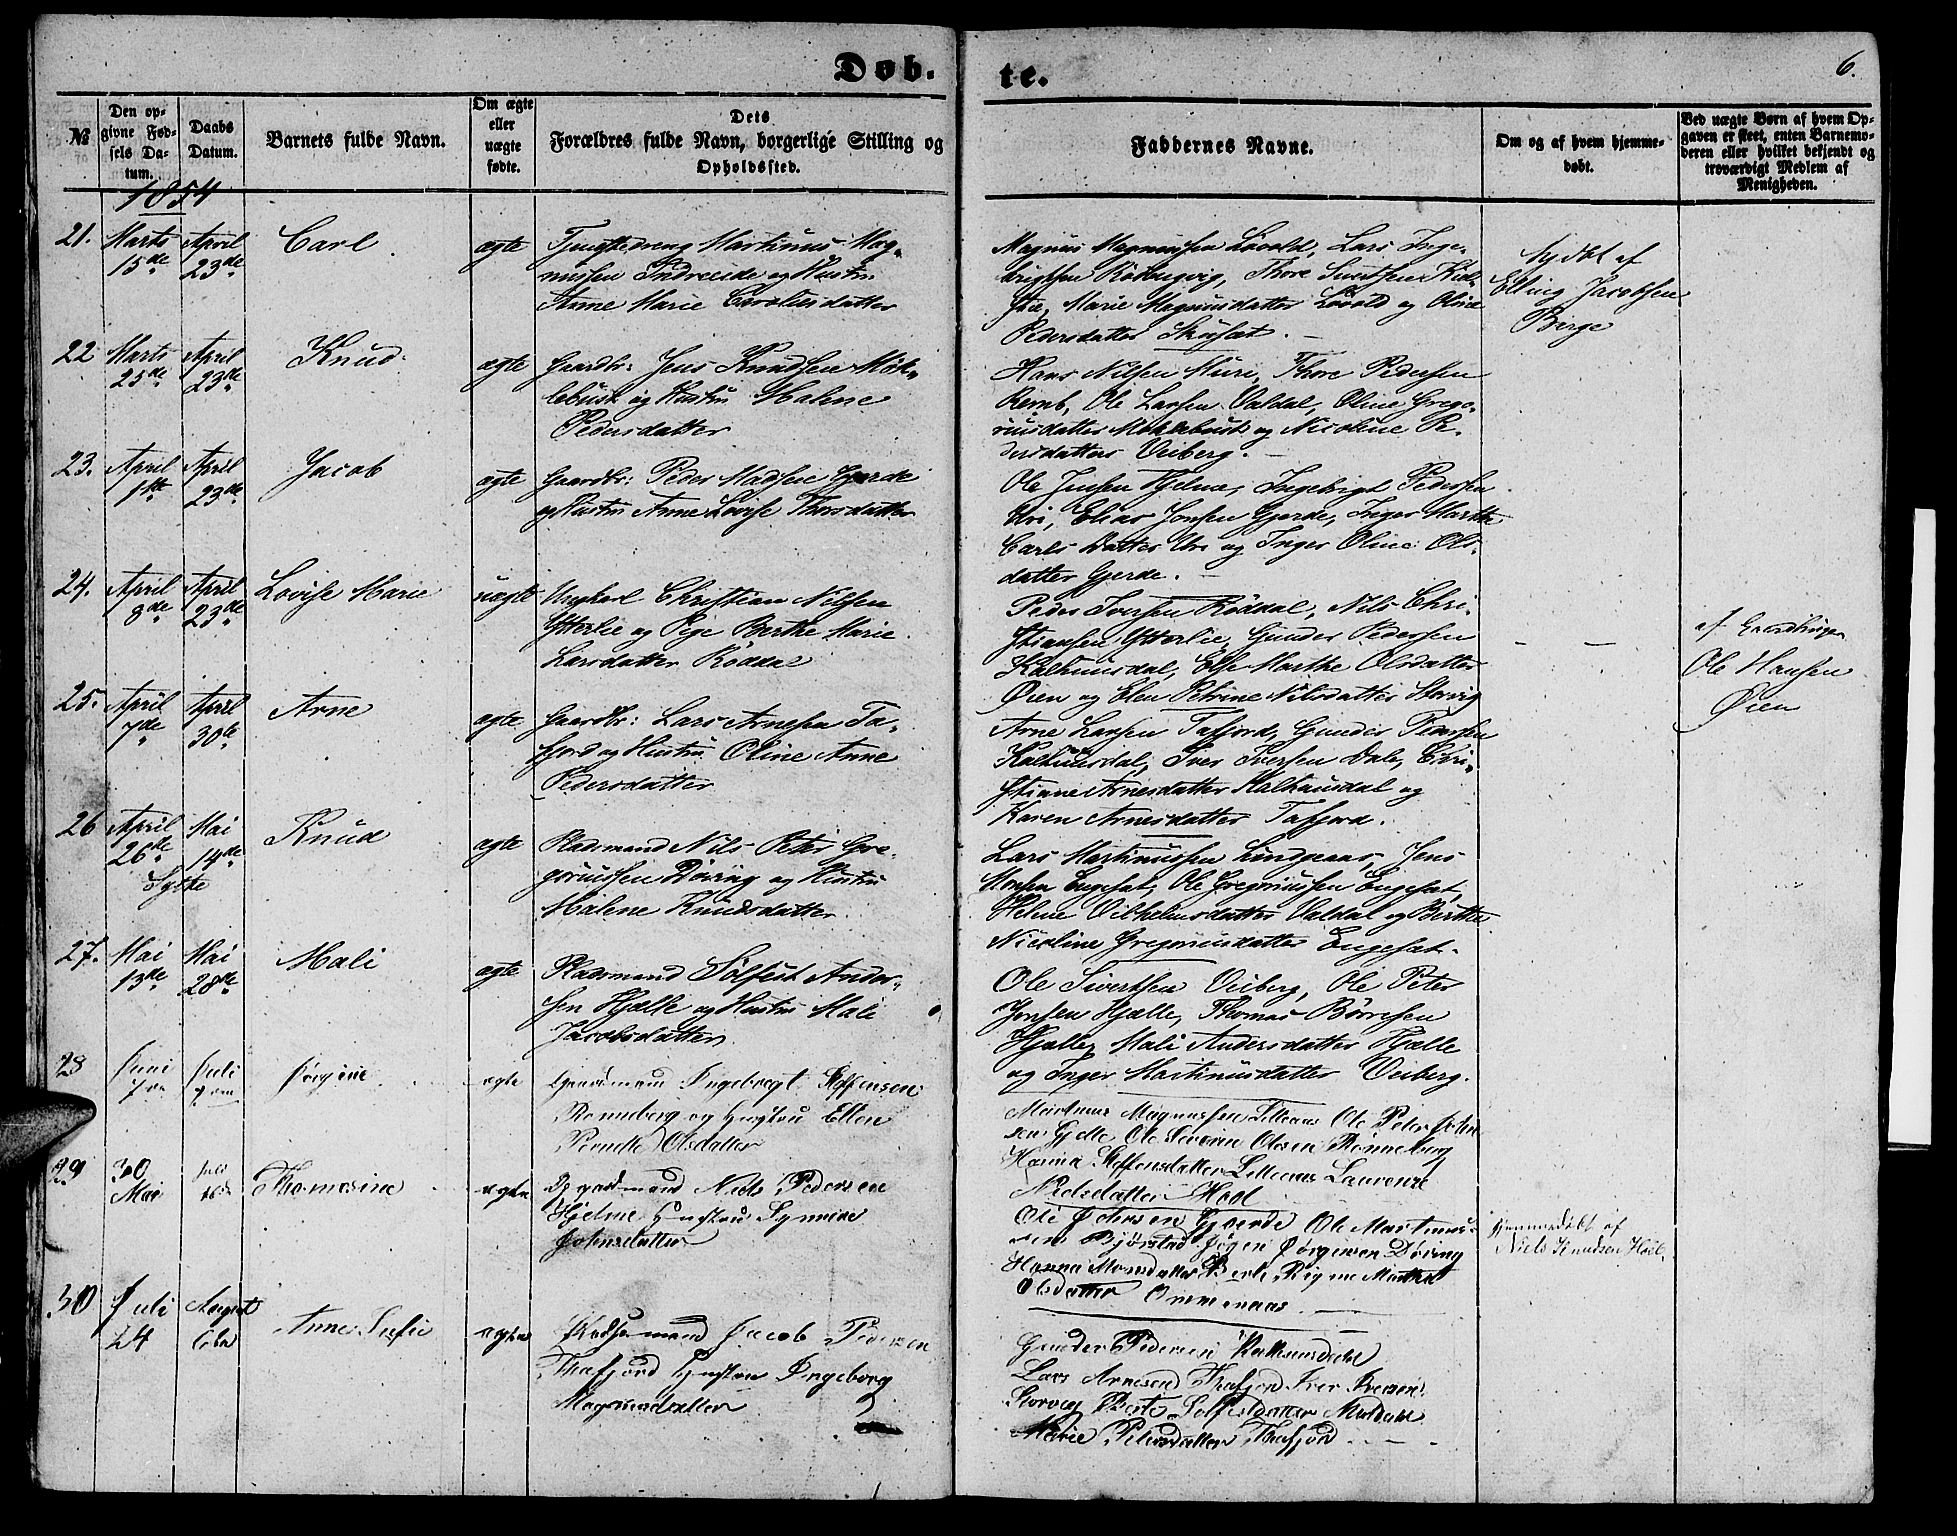 Døb.
te.
6.
№
Den op-
givne Fød-
sels Da-
tum.
Daabs
Datum.
Barnets fulde Navn.
Om ægte
eller
uægte
fødte.
Dets
Forældres fulde Navn, borgerlige Stilling og
Opholdssted.
Faddernes Navne.
Om og af hvem hjemme-
døbt.
Ved uægte Børn af hvem Op-
gaven er skeet, enten Barnemo-
deren eller hvilket bekjendt og
troværdigt Medlem af
Menigheden.
1854
21.
Marts
15de
April
23de
Carl
ægte
Tjenstedreng Martinus Mag-
nussen Indreeide og Hustru
Anne Marie Carolusdatter
Magnus Magnussen Løvold, Lars Inge-
brigtsen Thore
Marie Magnusdatter Løvold og Oline
Pedersdatter
af
Elling Jacobsen
Birge
22
Marts
25de
April
23de
Knud
ægte
Gaardbr: Jens Knudsen Møk-
lebust og Hustru Malene
Pedersdatter
Hans Nilsen Muri, Thore Pedersen
Remb, Ole Larsen Valdal, Oline Grego-
riusdatter Møklebust og Nicoline Pe-
dersdatter Veiberg.
23.
April
1ste
April
23de
Jacob
ægte
Gaardbr: Peder Madsen Gjerde
og Hustru Anne Lovise Thorsdatter
Ole Jensen Hjelme, Ingebrigt Pedersen
Uri, Elias Jonsen Gjerde, Inger Marthe
Carlsdatter Uri og Inger Oline Ols-
datter Gjerde.
24.
April
8de
April
23de
Lovise Marie
uægte
Ungkarl Christian Nilsen
Ytterlie og Pige Berthe Marie
Larsdatter Røddal
Peder Iversen Røddal, Nils Chri-
stiansen Ytterlie, Gunder Pedersen
Kalhunsdal, Else Marthe Olsdatter
Øien og Elen Petrine Nilsdatter Storvig
af
Ole Hansen
Øien
25.
April
7de
April
30te
Arne
ægte
Gaardbr: Lars Arnesen Ta-
fjord og Hustru Oline Anne
Pedersdatter
Arne Larsen Tafjord, Gunder Pedersen
Kalhunsdal, Iver Iversen Dale, Chri-
stianne Arnesdatter Kalhunsdal og
Karen Arnesdatter Tafjord.
26
April
26de
Mai
14de
Sylte
Knud
ægte
Pladsmand Nils Peter Gre-
goriussen Døving og Hustru
Malene Knudsdatter
Lars Martinussen Lingaas, Jens
Monsen Engeset, Ole Gregoriussen Engeset,
Helene Vilhelmsdatter Valdal og Birthe
Nicoline Gregoriusdatter Engeset.
27.
Mai
13de
Mai
28de
Mali
ægte
Pladsmand Sølfest Ander-
sen Hjelle og Hustru Mali
Jacobsdatter
Ole Sivertsen Veiberg, Ole Peter
Jonsen Hjelle, Thomas Børresen
Hjelle, Mali Andersdatter Hjelle
og Inger Martinusdatter Veiberg.
28
Juni
7
Juli
9
Jørgine
ægte
Gaardmand Ingebregt Steffensen
Rønneberg og Hustru Ellen
Pernelle Olsdatter
Martinus Magnussen Lilleaas Ole Peter John-
sen Gjelle Ole Severin Olsen Rønneberg
Hanna Steffensdatter Lilleaas Laurense
Nielsdatter Hoel
29
30
Mai
Juli
16de
Thomasine
ægte
Niels Pedersen
Hjelme Hustru Synneve
Johnsdatter
Ole Gjærde Ole Martinus-
sen Bjørstad Jørgen Jørgensen Døving
Hanna Monsdatter
Olsdatter Ommenaas
Hjemmedøbt af
Niels Knudsen Hoel
30
Juli
24
August
6te
Anne Sofie
ægte
Pladsmand Jacob Pedersen
Thafjord Hustru Ingeborg
Magnusdatter
Gunder Pedersen Kalhunsdahl
Lars Arnesen Thafjord Iver Iversen
Storvig Berte Solfestdatter Muldahl
Marie Petersdatter Thafjord